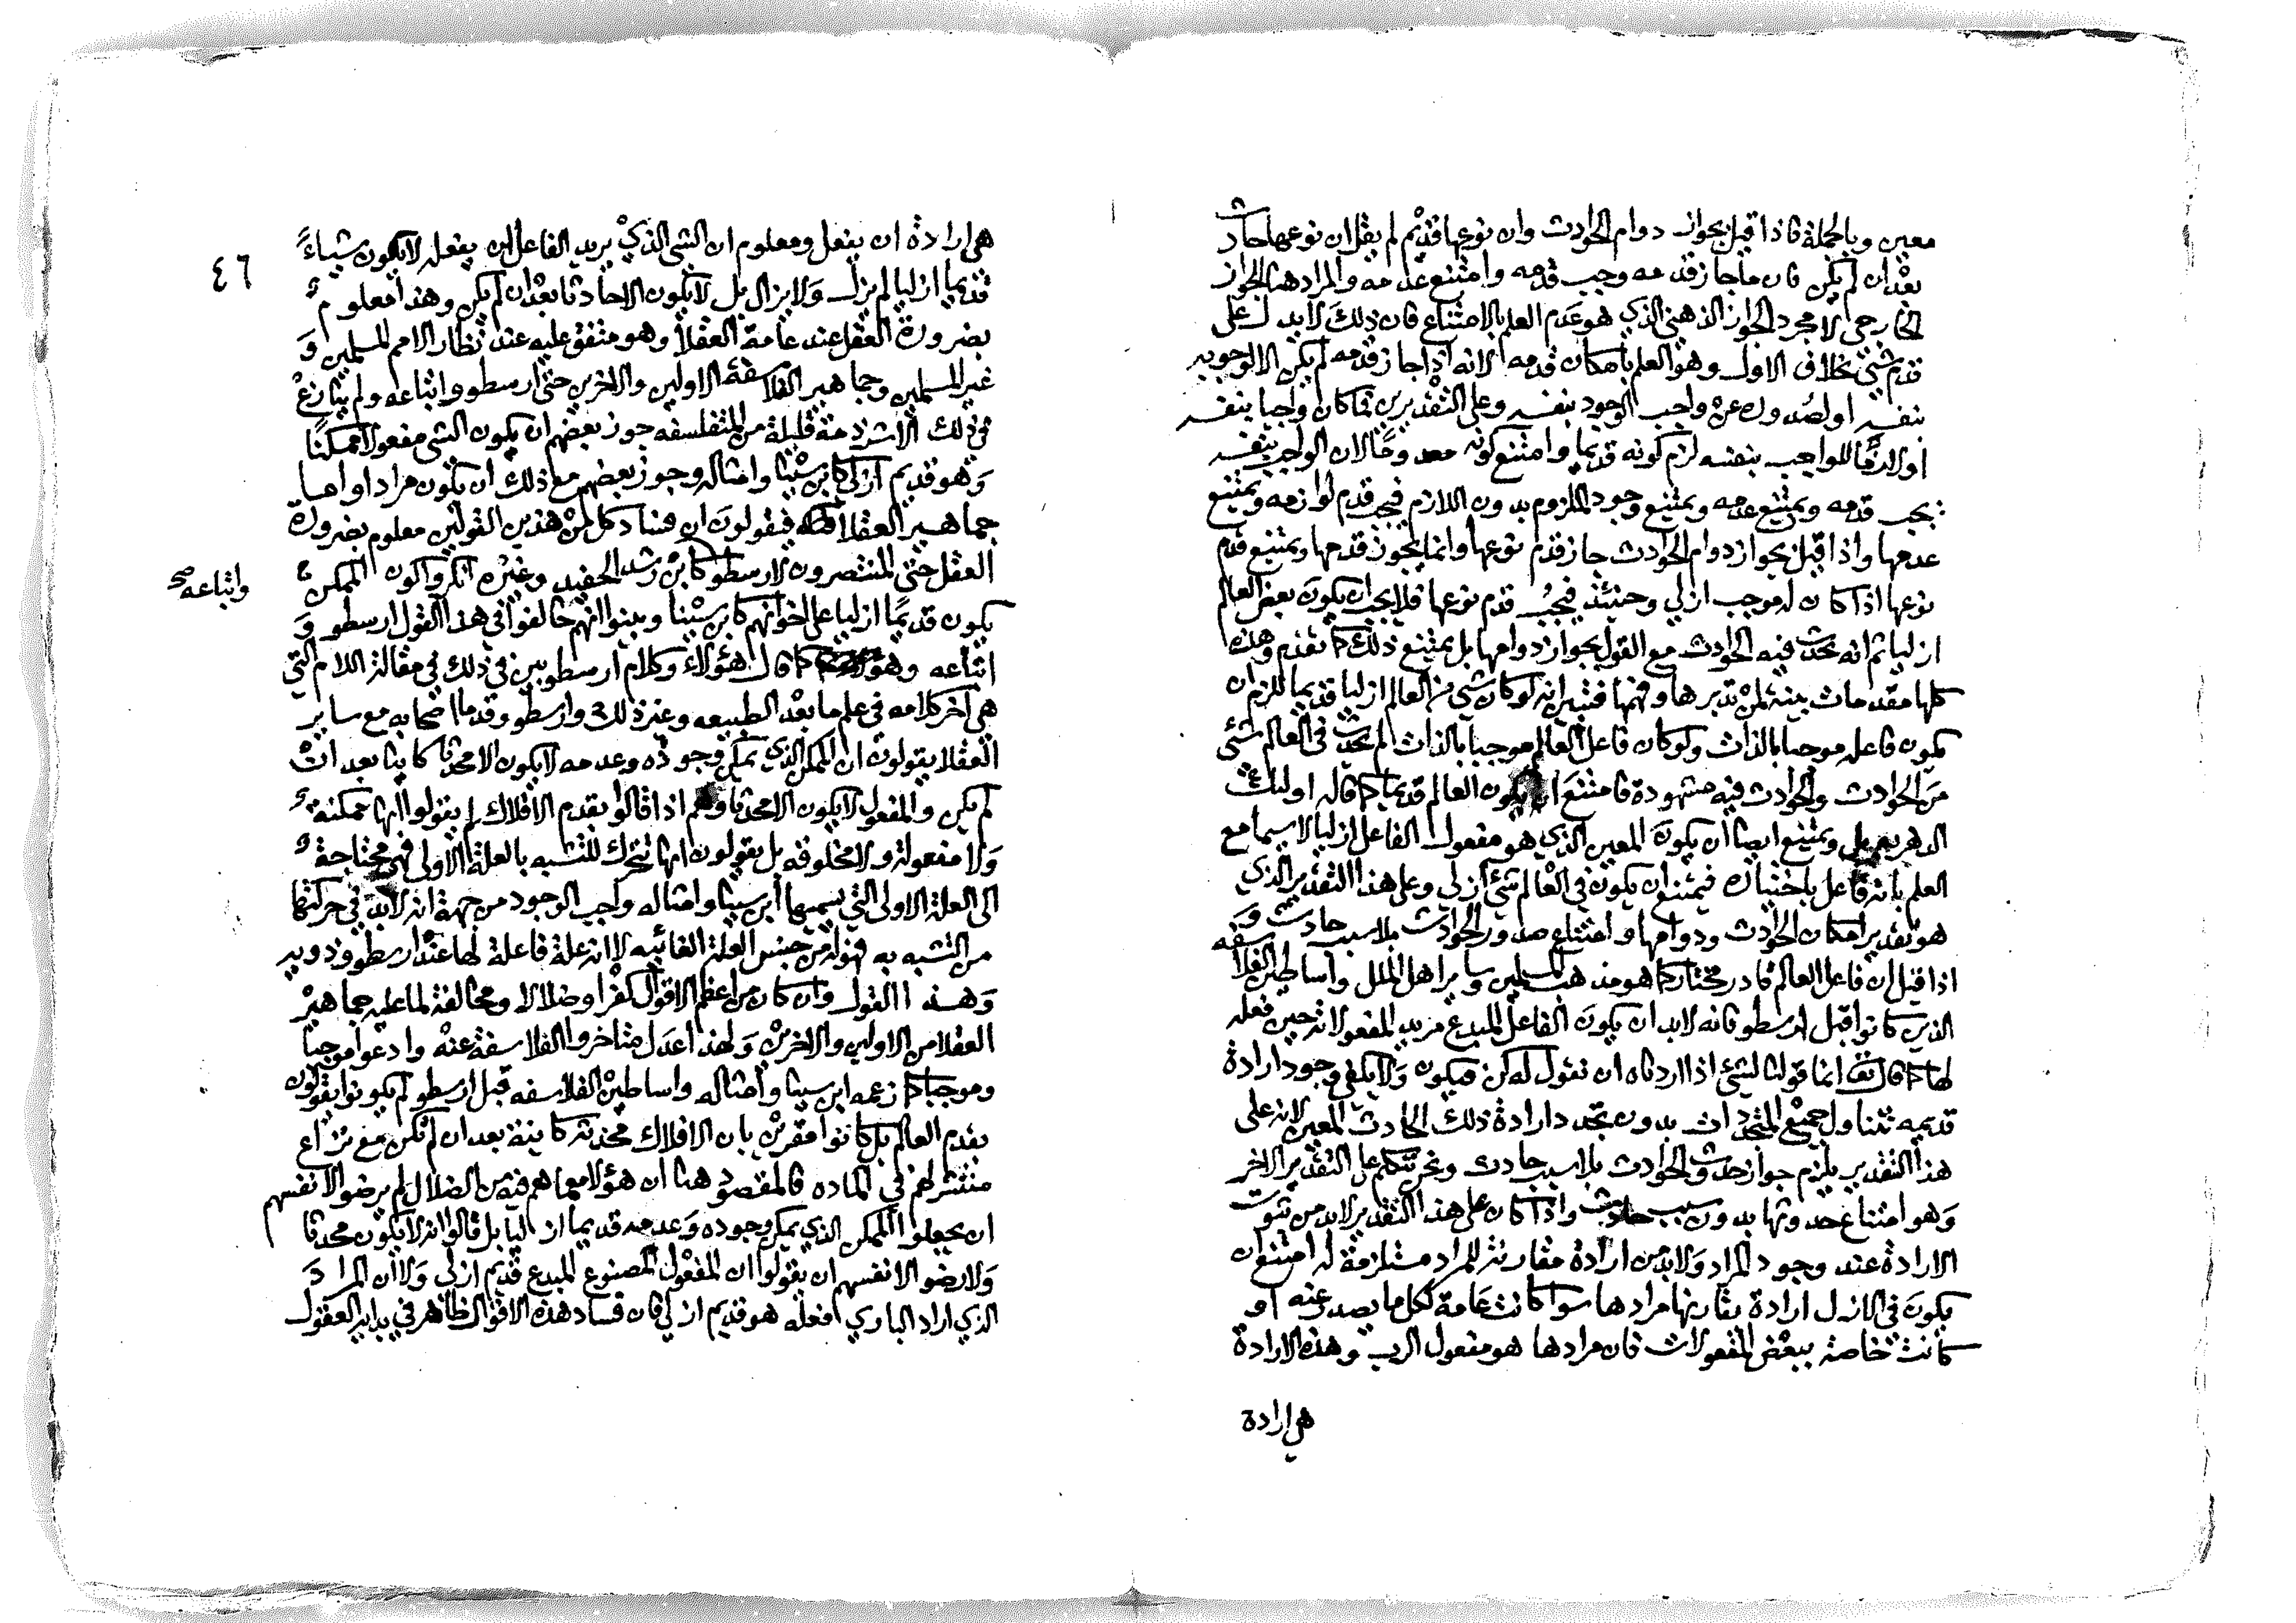 معين وبالجملة فاذا قيل بجواز دوام الحوادث وان نوعها قديم لم يقل ان نوعها حادث
بعد ان لم يكن فان ما جاز قدمه وجب قدمه وامتنع عدمه والمراد هنا الجواز
الخارجي لا مجرد الجواز الذهني الذي هو عدم العلم بالامتناع فان ذلك لا يدل على
قدم شيء بخلاف الاول وهو العلم بامكان قدمه لانه اذا جاز قدمه لم يكن الا لوجوبه
بنفسه او لصدوره عن واجب الوجود بنفسه وعلى التقديرين فما كان واجبا بنفسه
او لازما للواجب بنفسه لزم كونه قديما وامتنع كونه معدوما لان الواجب بنفسه
يجب قدمه ويمتنع عدمه ويمتنع وجود الملزوم بدون اللازم فيجب قدم لوازمه ويمتنع
عدمها واذا قيل بجواز دوام الحوادث جاز قدم نوعها وانما يجوز قدمها ويمتنع قدم
نوعها اذا كان له موجب ازلي وحينئذ فيجب قدم نوعها فلا يجب ان يكون بعض العالم
ازليا ثم انه يحدث فيه الحوادث مع القول بجواز دوامها بل يمتنع ذلك كما تقدم وهذه
كلها مقدمات بينة لمن تدبرها وفهمها فتبين انه لو كان شيء من العالم ازليا قديما للزم ان
يكون فاعله موجبا بالذات ولو كان فاعل العالم موجبا بالذات لم يحدث في العالم شيء
من الحوادث والحوادث فيه مشهودة فامتنع ان يكون العالم قديما كما قاله اولئك
الدهرية بل ويمتنع ايضا ان يكون المعين الذي هو مفعول الفاعل ازليا لا سيما مع
العلم بانه فاعل باختياره فيمتنع ان يكون في العالم شيء ازلي وعلى هذا التقدير الذي
هو تقدير امكان الحوادث ودوامها وامتناع صدور الحوادث بلا سبب حادث و
اذا قيل ان فاعل العالم قادر مختار كما هو مذهب المسلمين وساير اهل الملل واساطين الفلاسفه
الذين كانوا قبل ارسطو فانه لابد ان يكون الفاعل المبدع مريد المفعولاته حين فعله
لها كما قال تعالى انما قولنا لشيء اذا اردناه ان نقول له كن فيكون ولا يكفي وجود ارادة
قديمه تتناول جميع المتجددات بدون تجدد ارادة ذلك الحادث المعين لانه على
هذا التقدير يلزم جواز حدوث الحوادث بلا سبب حادث ونحن نتكلم على التقدير الاخر
وهو امتناع حدوثها بدون سبب حادث واذا كان على هذا التقدير لابد من ثبوت
الارادة عند وجود المراد ولابد من ارادة مقارنة للمراد مستلزمة له امتنع ان
يكون في الازل ارادة يقارنها مرادها سوا كانت عامة لكل ما يصدر عنه او
كانت خاصة ببعض المفعولات فان مرادها هو مفعول الرب وهذه الارادة
هي ارادة
٤٦
هي ارادة ان يفعل ومعلوم ان الشي الذي يريد الفاعل ان يفعله لا يكون شياء
قديما ازليا لم يزل ولا يزال بل لا يكون الا حادثا بعد ان لم يكن وهذا معلوم
بضرورة العقل عند عامة العقلا وهو متفق عليه عند نظار الامم المسلمين و
غير المسلمين وجماهير الفلاسفة الاولين والاخرين حتى ارسطو واتباعه ولم ينازع
في ذلك الا شرذمة قليلة من المتفلسفه جوز بعضهم ان يكون الشي مفعولا ممكنا
وهو قديم ازلي كابن سينا وامثاله وجوز بعضهم مع ذلك ان يكون مرادا واما
جماهير العقلا فيقولون ان فساد كل من هذين القولين معلوم بضرورة
العقل حتى المنتصرون لارسطو واتباعه كابن رشد الحفيد وغيره انكروا كون الممكن
يكون قديما ازليا على اخوانهم كابن سينا وبينوا انهم خالفوا في هذا القول ارسطو و
اتباعه وهو كما قال هؤلاء وكلام ارسطو بين في ذلك في مقالة اللام التي
هي اخر كلامه في علم ما بعد الطبيعه وغير ذلك وارسطو وقدما اصحابه مع ساير
العقلا يقولون ان الممكن الذي يمكن وجوده وعدمه لا يكون الا محدثا كاينا بعد ان
لم يكن والمفعول لا يكون الا محدثا وهم اذا قالوا بقدم الافلاك لم يقولوا انها ممكنة
ولا مفعولة ولا مخلوقه بل يقولون انها تتحرك للتشبه بالعلة الاولى فهي محتاجة
الى العلة الاولى التي يسميها ابن سينا وامثاله واجب الوجود من جهة انه لابد في حركتها
من التشبه به فهو لها من جنس العلة الغائيه لا انه علة فاعلة لها عند ارسطو وذويه
وهذا القول وان كان من اعظم الاقوال كفرا وضلالا ومخالفة لما عليه جماهير
العقلا من الاولين والاخرين ولهذا عدل متاخروا الفلاسفة عنه وادعوا موجبا
وموجبا كما زعمه ابن سينا وامثاله واساطين الفلاسفه قبل ارسطو لم يكونوا يقولون
بقدم العالم بل كانوا مقرين بان الافلاك محدثة كاينة بعد ان لم تكن مع نزاع
منتشر لهم في الماده فالمقصود هنا ان هؤلا مع ما هم فيه من الضلال لم يرضوا لانفسهم
ان يجعلوا الممكن الذي يمكن وجوده وعدمه قديما ازليا بل قالوا انه لا يكون محدثا
ولا رضوا لانفسهم ان يقولوا ان المفعول المصنوع المبدع قديم ازلي ولا ان المراد
الذي اراد الباري افعله هو قديم ازلي فان فساد هذه الاقوال ظاهر في بدايه العقول
واتباعه صح